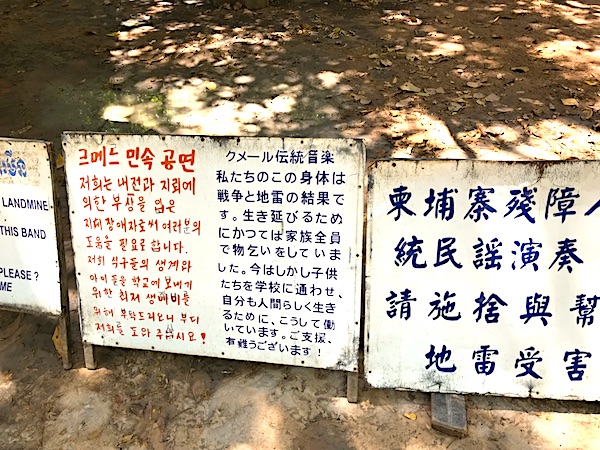 LANDMINE
THIS BAND
PLEASE ?
ME
크메느 민속 공연
저희는 내전과 지뢰에
의한 부상을 입은
지체 장애자로써 여러분의
도움을 필요로 합니다.
저희 식구들의 생계와
아이들을 학교에 보내기
위한 최저 생활비를
위해 부탁드리오니 부디
저희를 도와 주십시요!
クメール伝統音楽
私たちのこの身体は
戦争と地雷の結果で
す。生き延びるため
にかつては家族全員
で物乞いをしていま
した。今はしかし子供
たちを学校に通わせ、
自分も人間らしく生き
るために、こうして働
いています。ご支援、
有難うございます!
柬埔寨殘障人
統民謡演奏
請施捨與幫
地雷受害